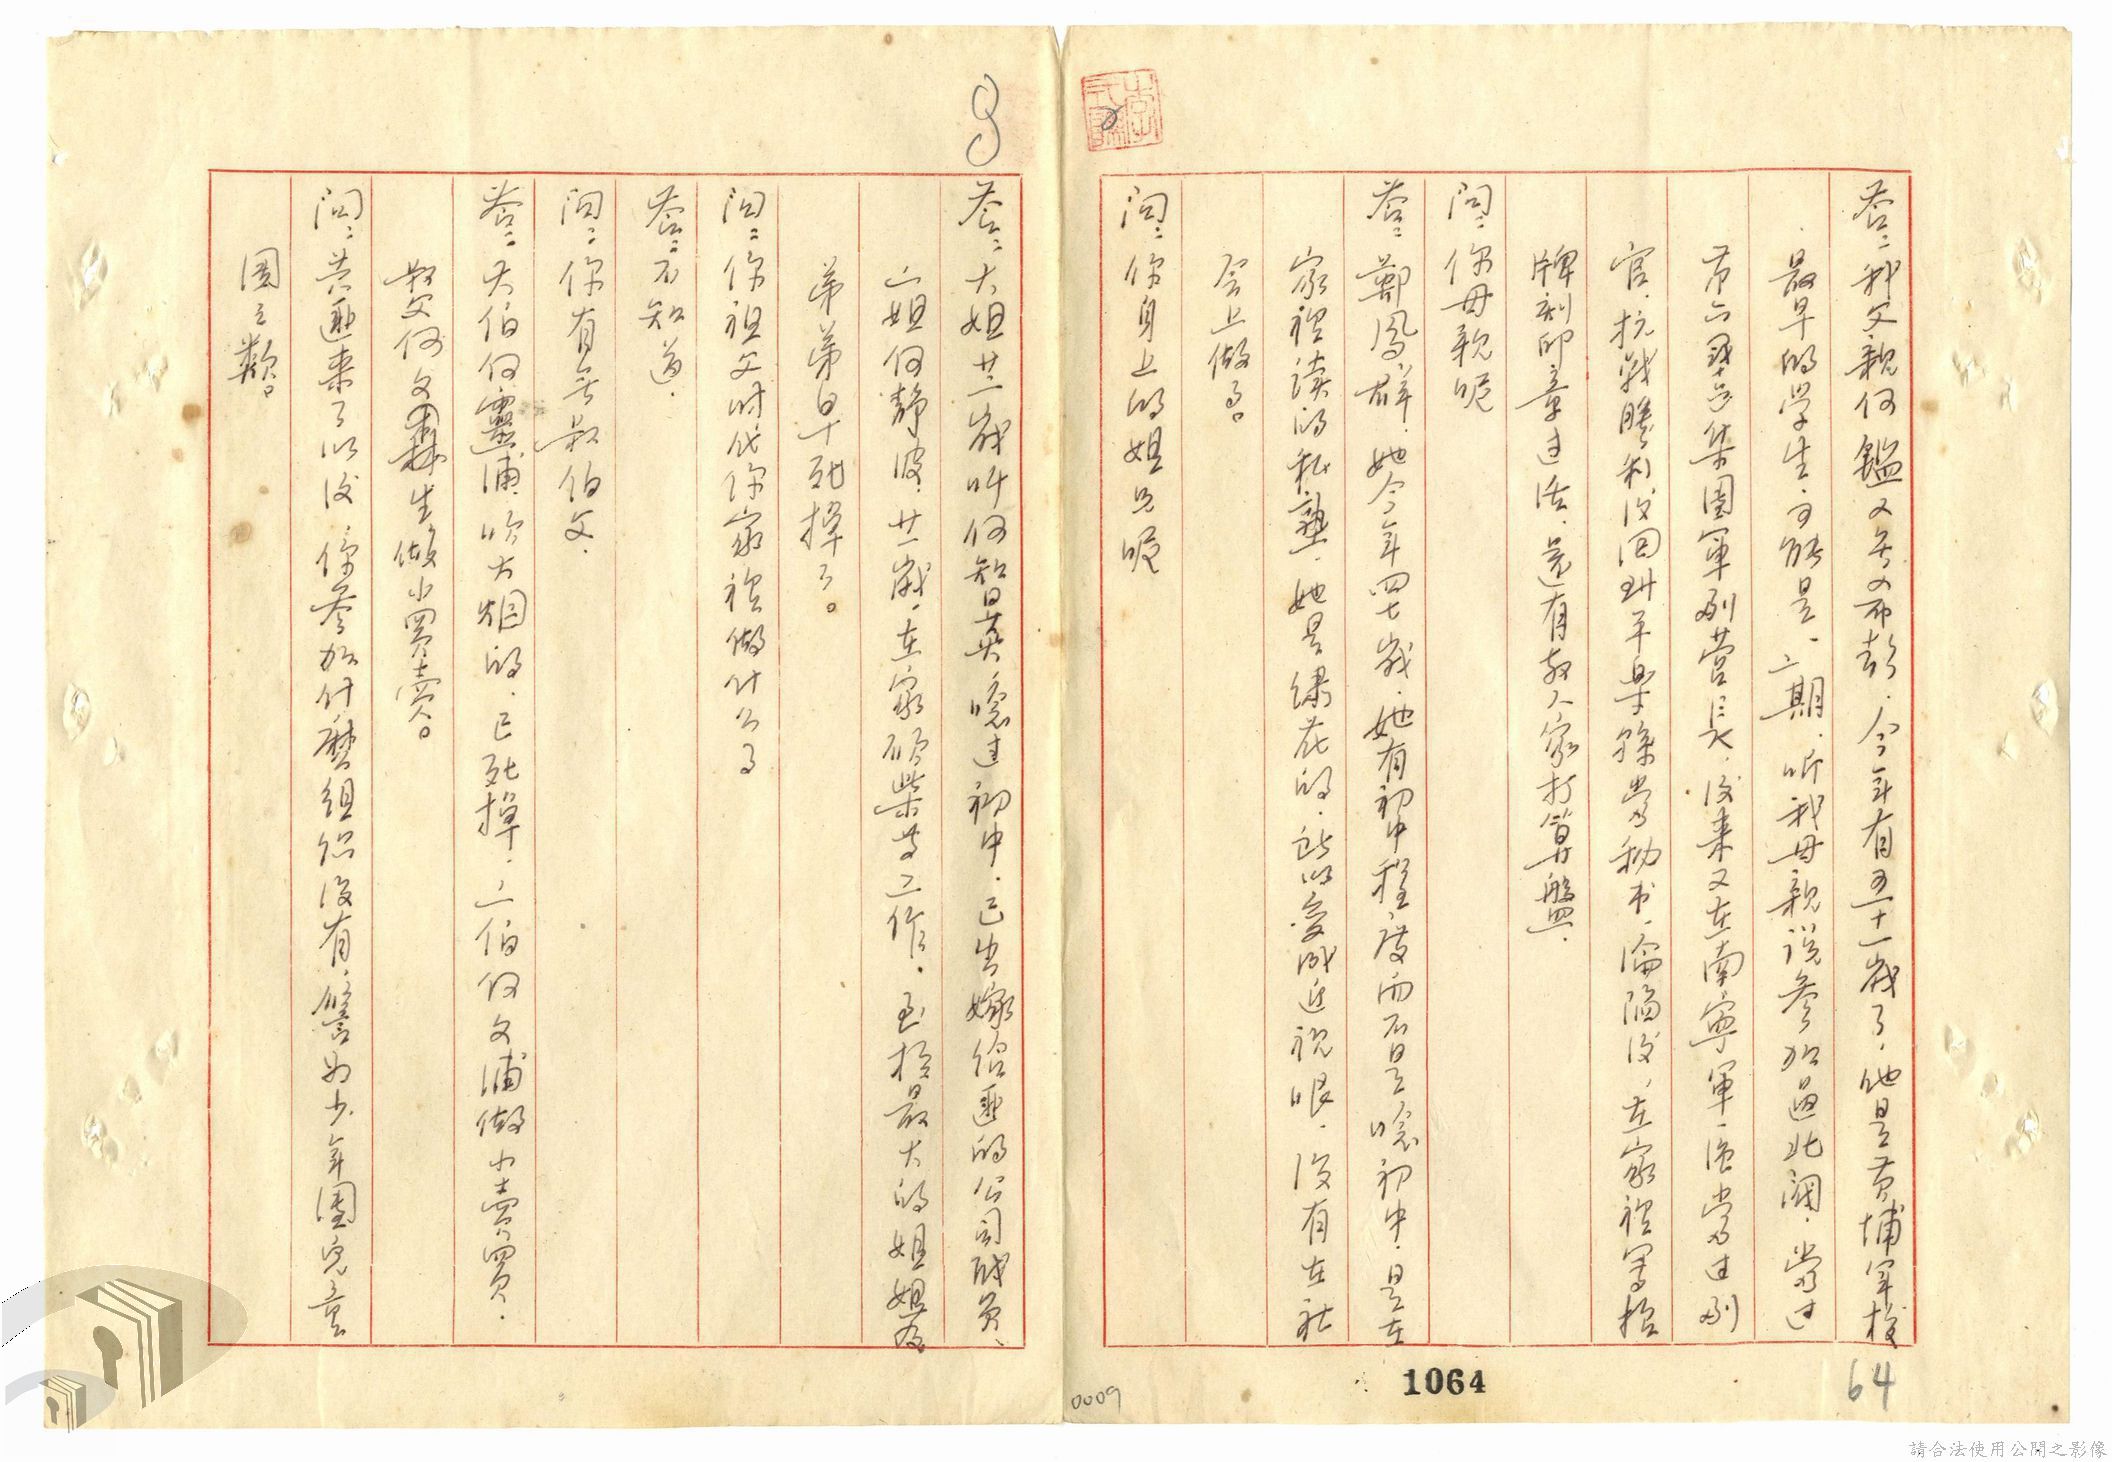 答：我父親何鑑又号又希彭．今年有五十一歲了．他是黃埔军校
最早的学生．可能是一、二期．听我母親說參加過北閥．當过
第六十四集團軍副营長．後来又在南寧軍區當过副
官．抗战勝利後回到平樂縣當秘书．淪陷後．在家裡寫招
牌刻印章过活．還有教人家打算盤．
問：你母親呢
答：鄭鳳群．她今年四七歲．她有初中程度而不是唸初中．是在
家裡讀的私塾．她是绣花的．所以变成近視眼．没有在社
会上做事。
問：你身上的姐兄呢
答：大姐廿三歲叫何智英唸过初中．已出嫁给匪的公司職员、
二姐何静波．廿一歲．在家砍柴等工作．
弟弟早十死掉了。
問：你祖父时代你家裡做什么事
答：不知道．
問：你有無叔伯父．
答：大伯何靈浦．吹大烟的．已死掉．二伯何文浦做小賣買．
叔父何文森生做小買賣。
問：共匪来了以後你參加什麼組织没有．譬如少年團兒童
團之類。
1064
64
0009
請合法使用公開之影像